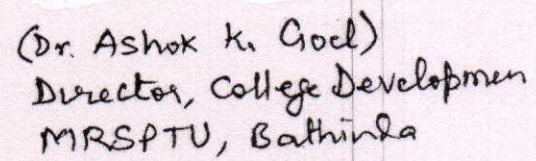 (Dr. Ashok K. Goel)
Director, College Developmen
MRSPTU, Bathinda